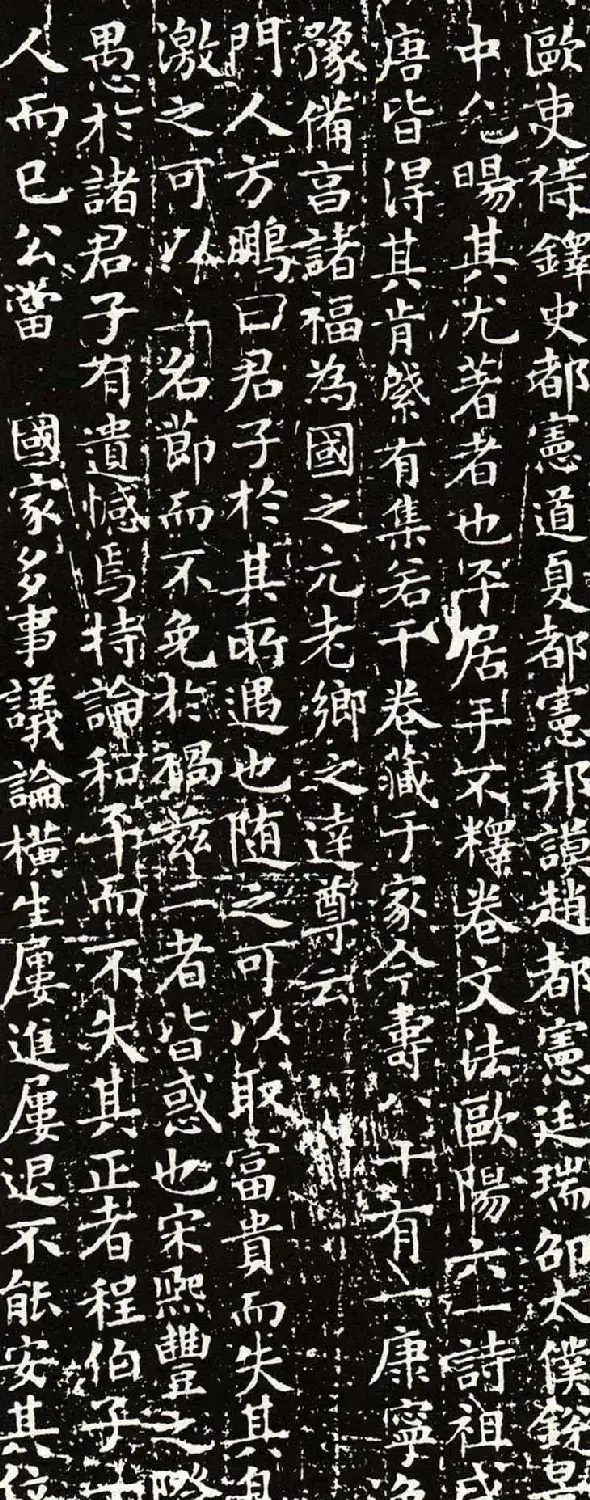 歐吏待鐸史都憲道夐都憲邦謨趙都憲廷瑞邵太僕銳
中允暘其尤著者也平居手不釋卷文法歐陽六一詩祖
唐皆得其肯綮有集若干卷藏于家今壽八十有一康寧
豫備高諸福為國之元老鄉之達尊云
門人方鵬曰君子於其所遇也随之可以取富貴而失其
激之可以 名節而不免於禍茲二者皆惑也宋熙豐之際
愚於諸君子有遺憾焉特論和平而不失其正者程伯子
人而已公當 國家多事議論橫生屢進屢退不能安其位